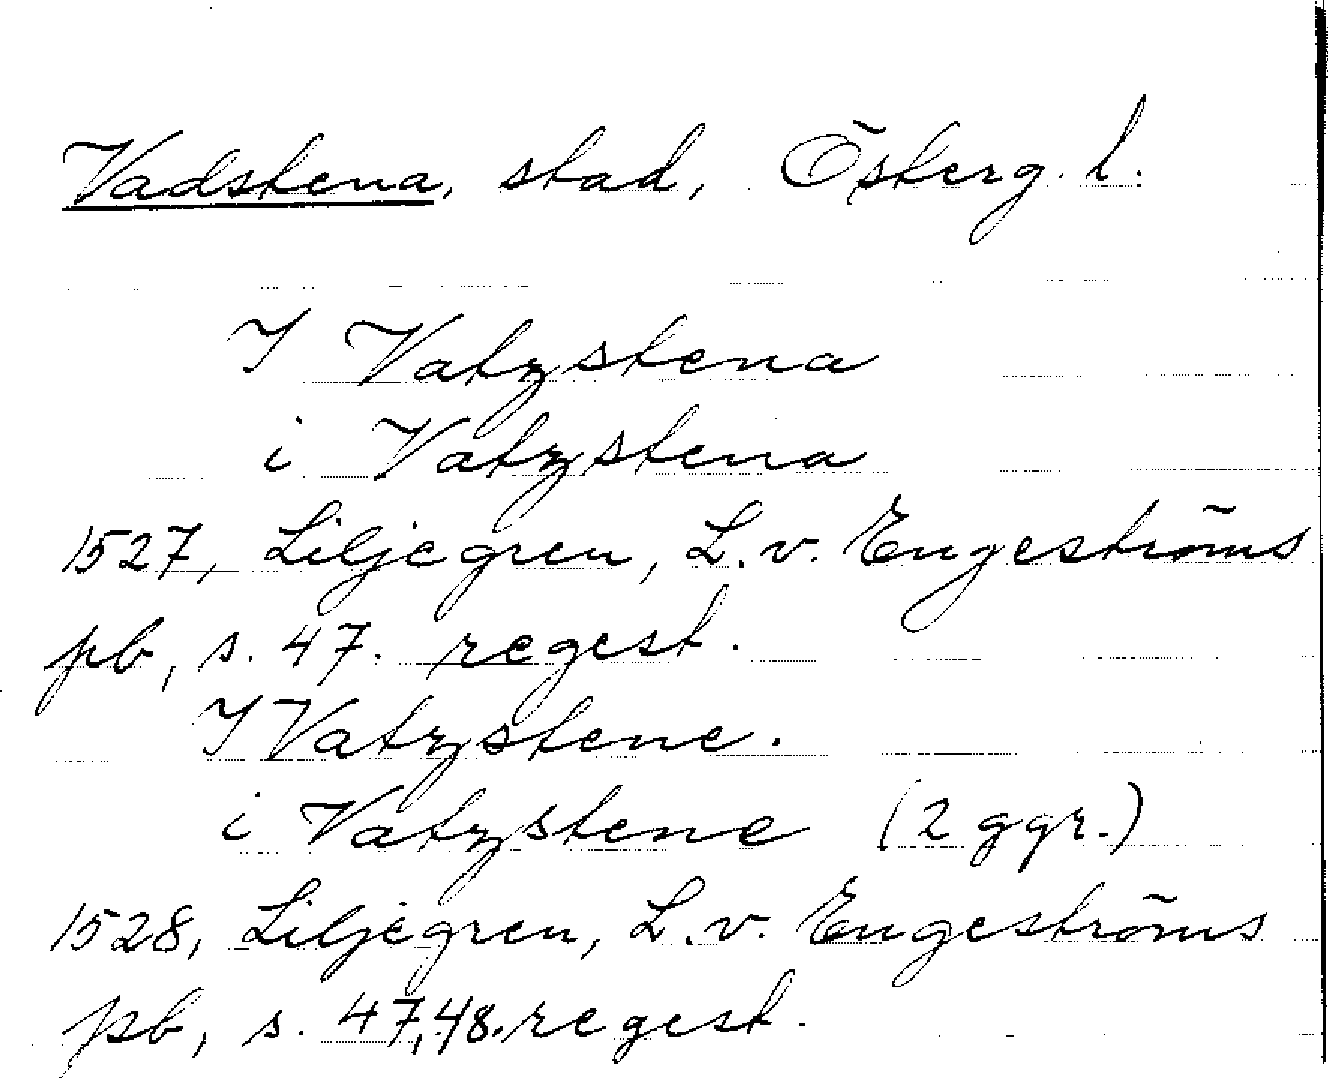 Vadstena, stad, Österg. l.
I Vatzstena
i Vatzstena
1527, Liljegren, L. v. Engeströms
pb, s. 47. regest.
I Vatzstene.
i Vatzstene (2 ggr.)
1528, Liljegren, L. v. Engeströms
pb, s. 47, 48. regest.